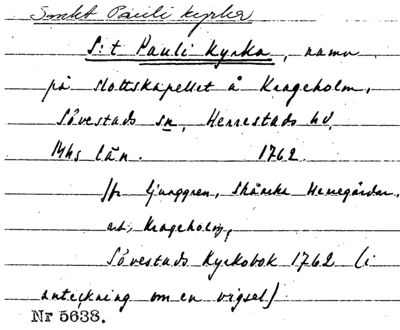 Sankt Pauli kyrka
S:t Pauli Kyrka, namn
på slottskapellet å Krageholm,
Sövestads sn, Herrestads hd,
Mhs län. 1762.
Jfr Ljunggren, Skånska Herregårdar,
art. Krageholm,
Sövestads Kyrkobok 1762 (i
anteckning om en vigsel)
Nr 5638.